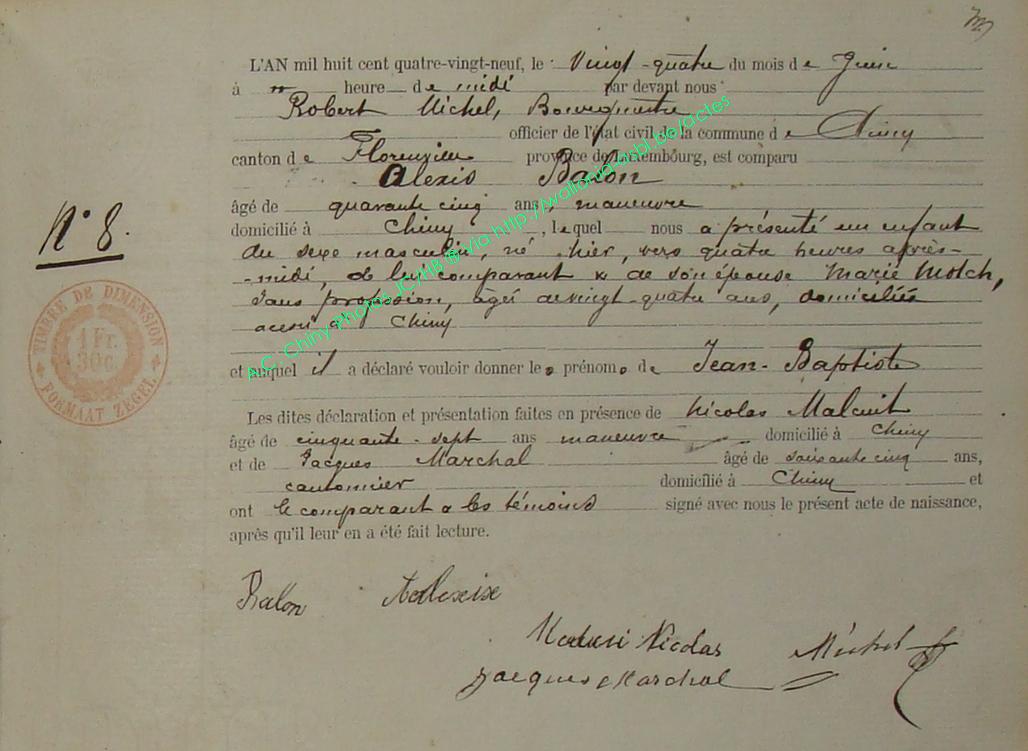 N° 8.
TIMBRE DE DIMENSION
1 Fr.
30 c.
FORMAAT ZEGEL
L'AN mil huit cent quatre-vingt-neuf, le vingt-quatre du mois de Juin
à heure de midi par devant nous
Robert Michel, Bourgmestre
officier de l'état civil de la commune de Chiny
canton de Florenville province de Luxembourg, est comparu
Alexis Balon
âgé de quarante cinq ans, maneuvre
domicilié à Chiny, lequel nous a présenté un enfant
du sexe masculin, né hier, vers quatre heures après-
-midi, de lui comparant & de son épouse Marie Molch,
sans profession, âgée de vingt-quatre ans, domiciliés
à Chiny
et auquel il a déclaré vouloir donner les prénoms de Jean-Baptiste
Les dites déclaration et présentation faites en présence de Nicolas Malcuit
âgé de cinquante-sept ans maneuvre domicilié à Chiny
et de Jacques Marchal âgé de soixante cinq ans,
cantonnier domicilié à Chiny et
ont le comparant & les témoins signé avec nous le présent acte de naissance,
après qu'il leur en a été fait lecture.
Balon
Nicolas Michel
Jacques Marchal
A.C. Chiny Photos JC/HB @via http://wallonia-asbl.be/actes